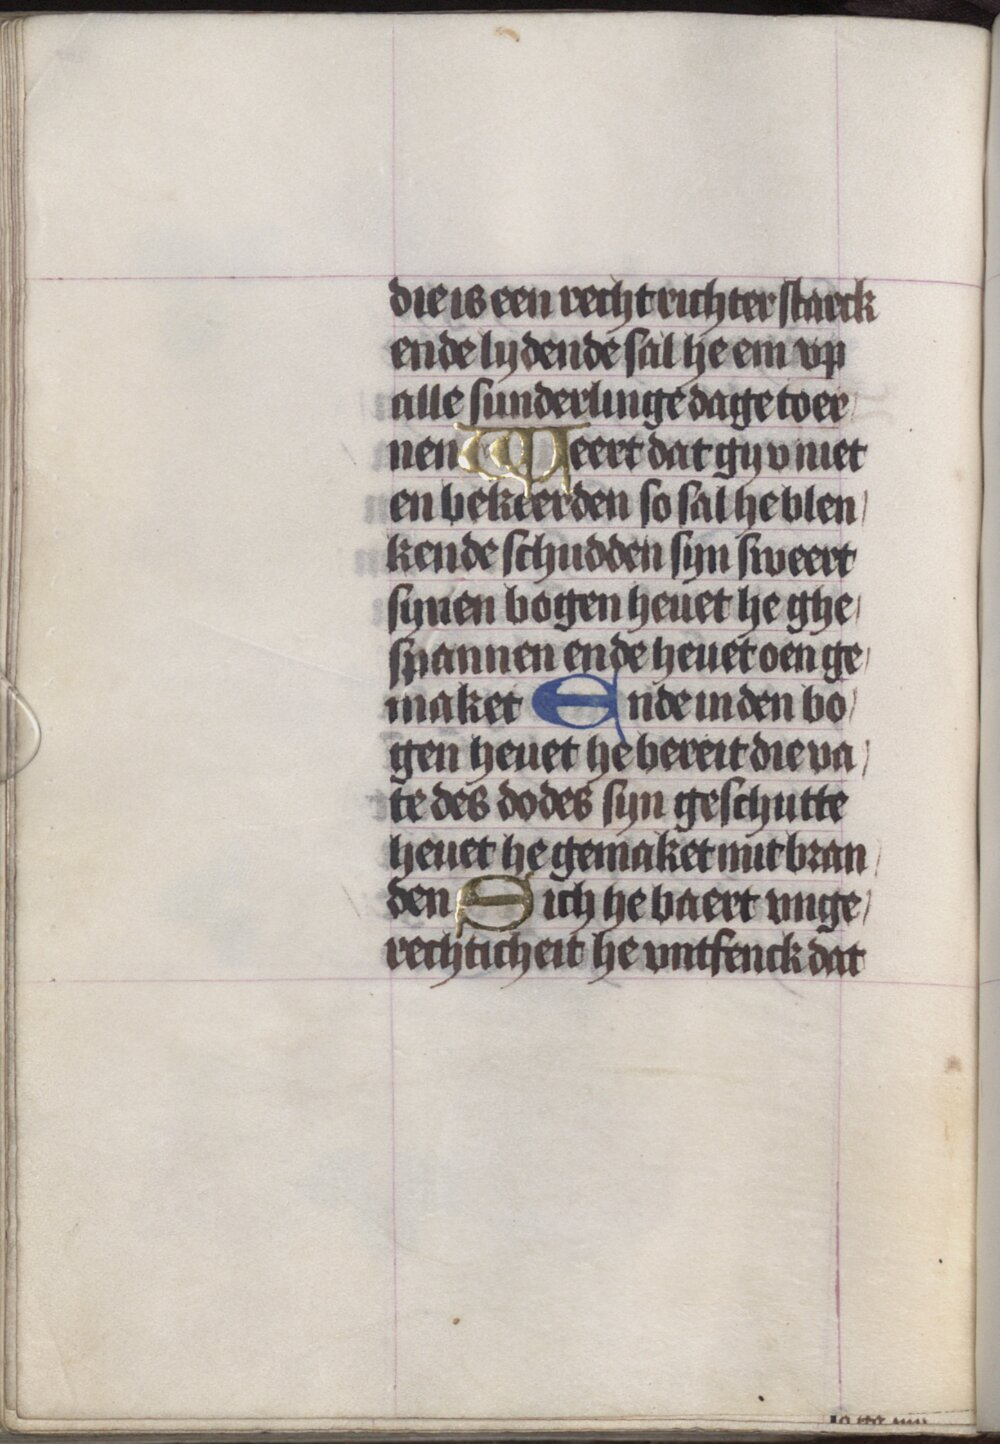 die is een recht richter starck
ende lydende sal he em vp
alle sunderlinge dage toer
nen Weert dat gy v niet
en bekeerden so sal he blen
kende schudden syn sweert
synen bogen heuet he ghe
spannen ende heuet oen ge
maket Ende in den bo
gen heuet he bereit die va
te des dodes syn geschutte
heuet he gemaket mit bran
den Sich he baert vnge
rechticheit he vntfenck dat